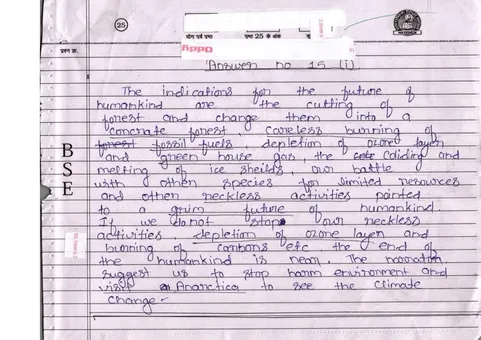 25
योग पूर्व पृष्ठ
पृष्ठ 25 के अंक
प्रश्न क्र.
Answer no 15 (i)
The indications for the future of
humankind are the cutting of
forest and change them into a
concrate forest, careless burning of
forest fossil fuels, depletion of ozone layer
and green house gas, the coliding and
melting of ice sheilds, our battle
with other species for limited resources
and other reckless activities painted
to a grim future of humankind.
If we do not stop our reckless
activities, depletion of ozone layen and
burning of carbons etc the end of
the humankind is near. The narrator
suggest us to stop harm environment and
visit Anarctica to see the climate
change-
B
S
E